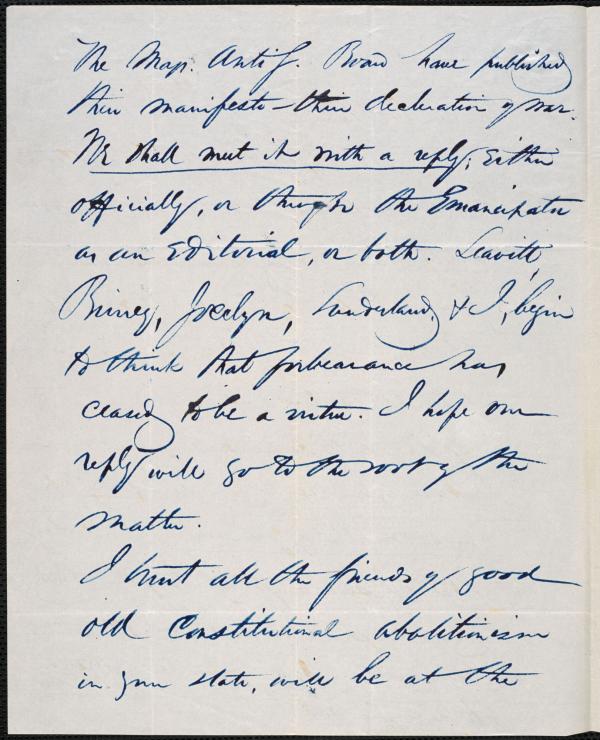 The Mass. Anti S. Board have published
their manifesto—their declaration of war.
We shall meet it with a reply; either
officially, or through the Emancipator
as an Editorial, or both. Leavitt,
Birney, Jocelyn, Sunderland, & I, begin
to think that forbearance has
ceased to be a virtue. I hope our
reply will go to the root of the
matter.
I trust all the friends of good
old Constitutional abolitionism
in your state, will be at the